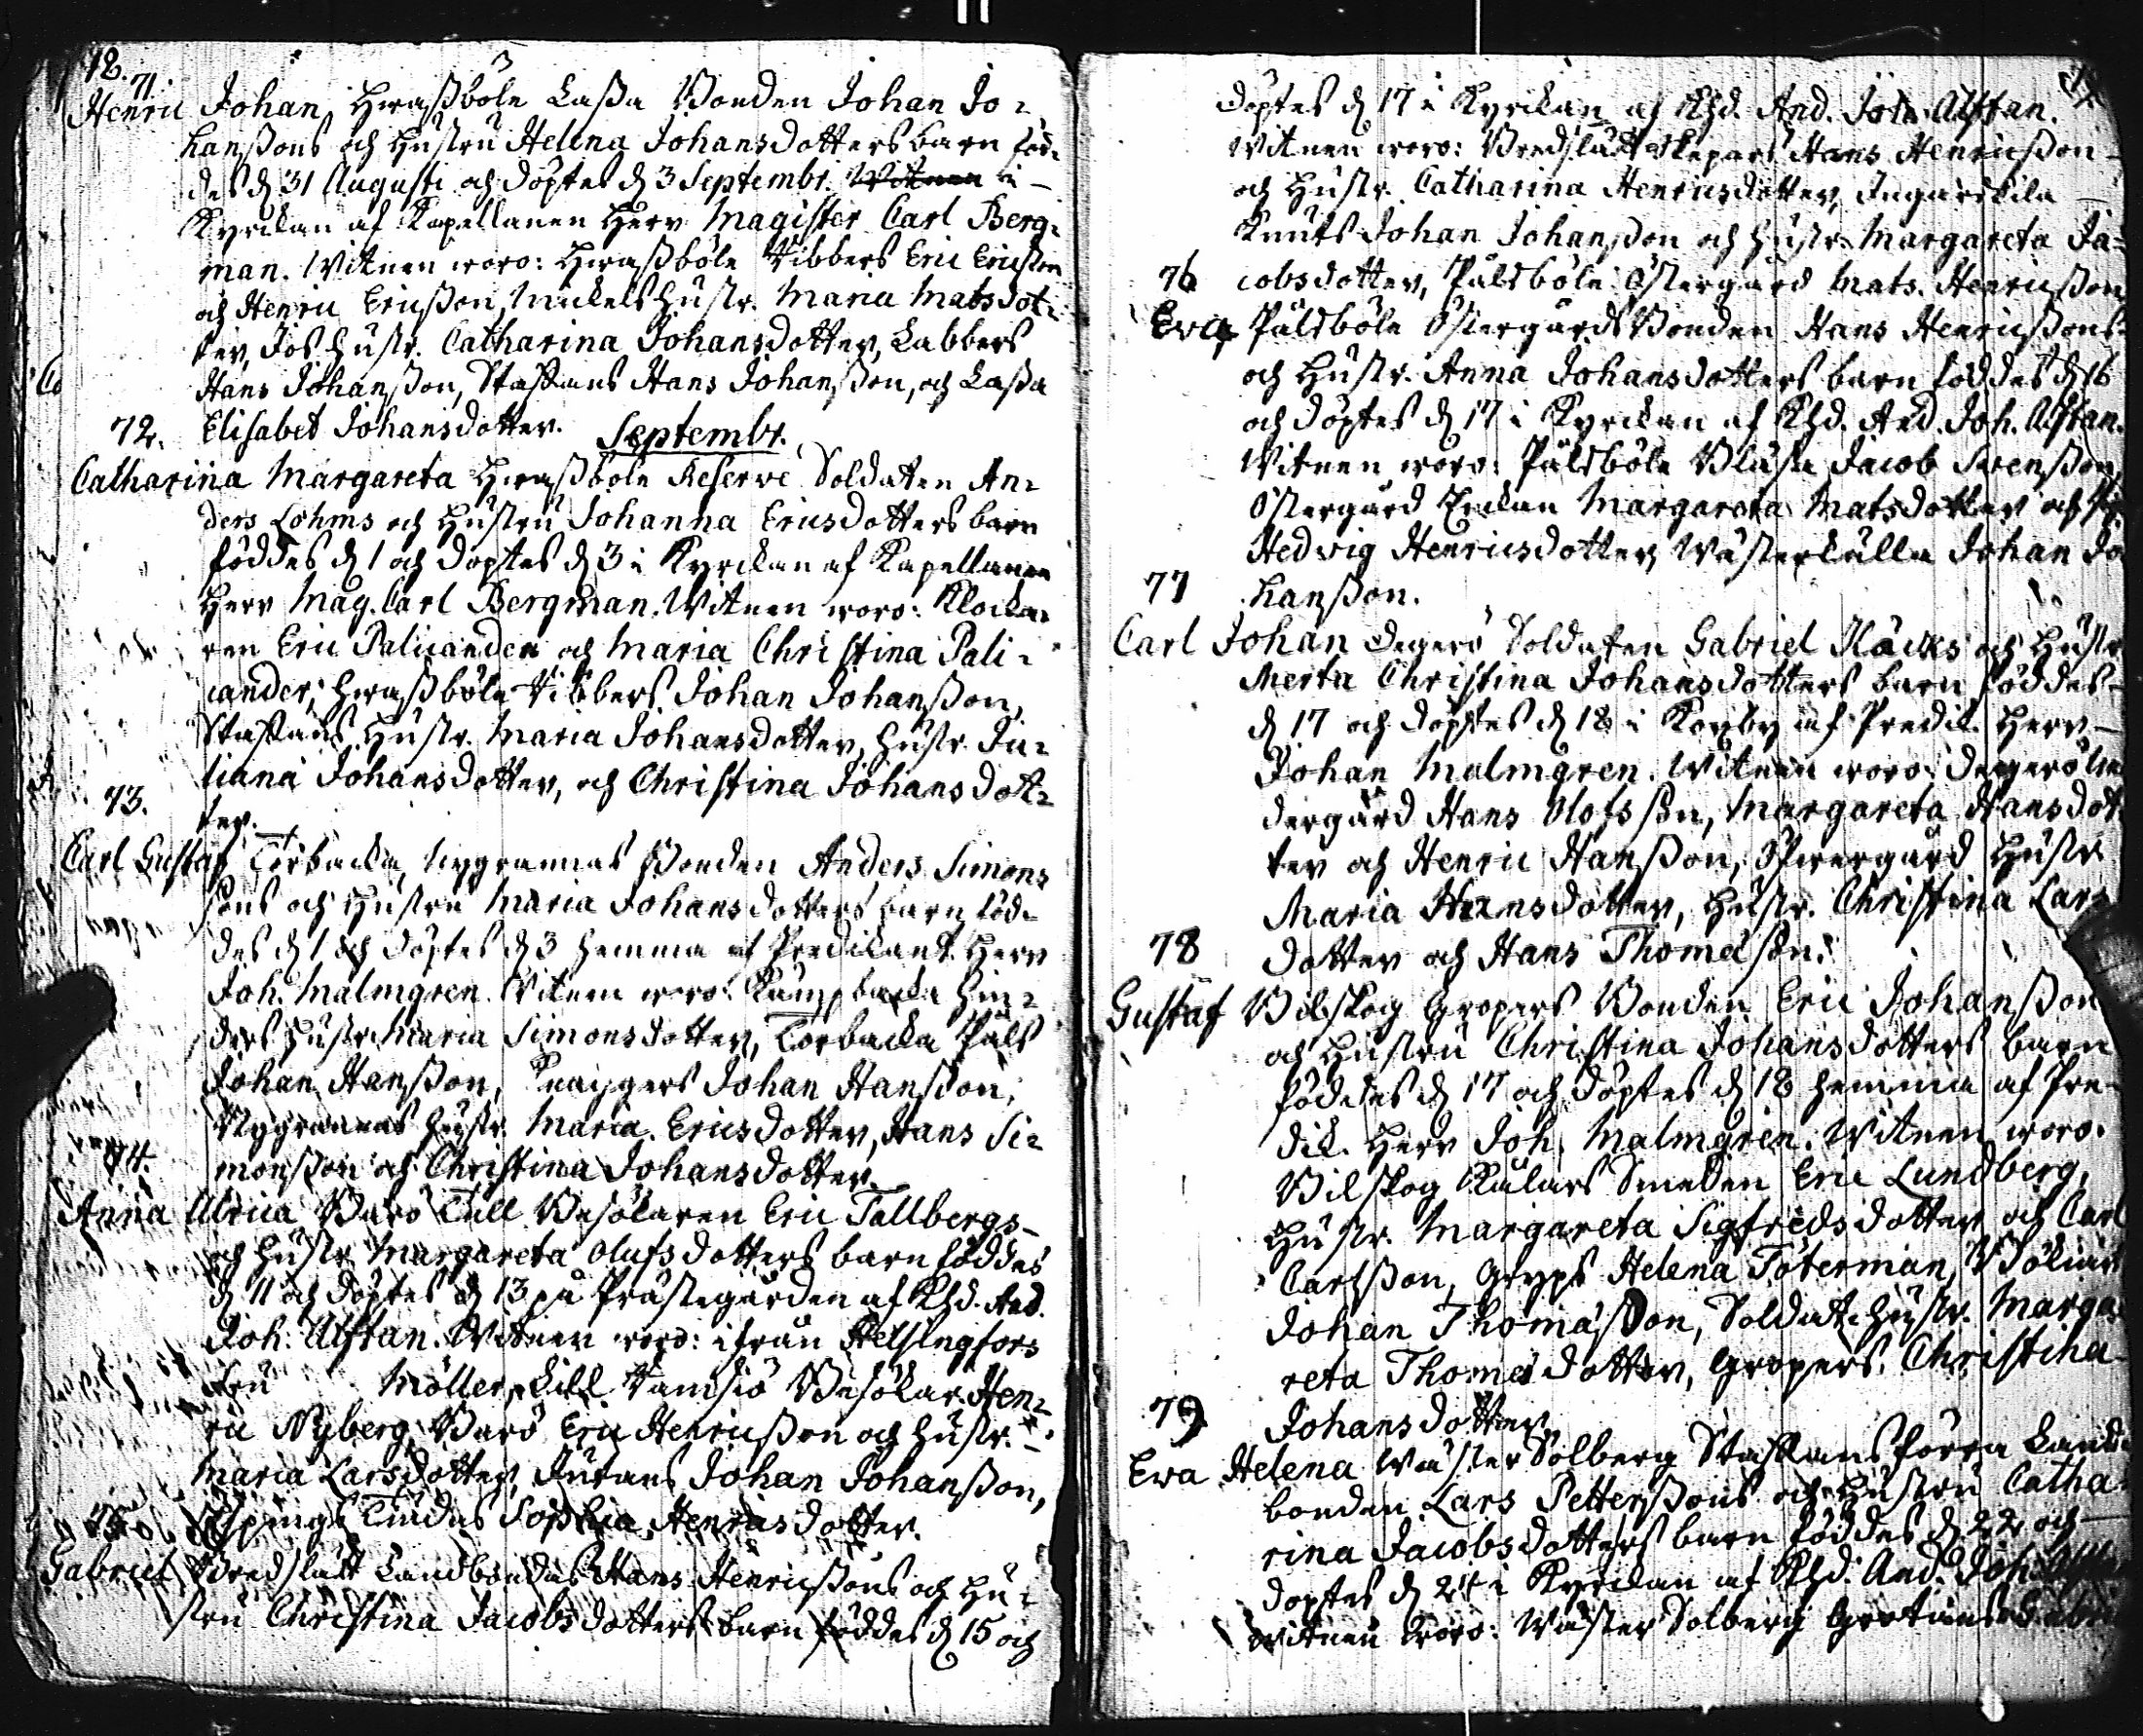 12.
71.
Henric Johan, Hwassböle Lassa Bonden Johan Jo-
hanssons och Hustru Helena Johansdotters barn föd-
des d 31 Augusti och döptes d 3 Septembr. Witnen i
Kyrckan af Kapellanen Herr Magister Carl Berg-
man. Witnen woro: Hwassböle Vibbers Eric Ericsson
och Henric Ericsson, Mickels Hustr. Maria Matsdot-
ter, Jos Hustr. Catharina Johansdotter, Labbers
Hans Johansson, Staffans Hans Johansson, och Lassa
72. Elisabet Johansdotter.
Septembr.
Catharina Margareta Hwassböle Reserve Soldaten An-
ders Lohms och Hustru Johanna Ericsdotters barn
föddes d 1 och döptes d 3 i Kyrckan af Kapellanen
Herr Mag. Carl Bergman. Witnen woro: Klocka-
ren Eric Palicander och Maria Christina Pali-
cander, Hwassböle Vibbers Johan Johansson,
Staffans Hustr. Maria Johansdotter, Hustr. Ju-
liana Johansdotter, och Christina Johansdot-
73. ter.
Carl Gustaf Torbacka Nygrannas Bonden Anders Simons
sons och Hustru Maria Johansdotters barn föd-
des d 1 och döptes d 3 hemma af Predikant. Herr
Joh. Malmgren. Witnen woro: Kampbacka Hin-
ders Hustr. Maria Simonsdotter, Torbacka Påls
Johan Hansson, Knaggers Johan Hansson,
Nygrannas Hustr. Maria Ericsdotter, Hans Si-
74. monsson och Christina Johansdotter.
Anna Ulrica Barö Tull Besökaren Eric Tallbergs
och Hustr. Margareta Olufsdotters barn föddes
d 11 och döptes d 13 på Prästegården af Khd. And.
Joh. Alftan. Witnen woro: ifrån Helsingfors
Fru Möller, Lill Ramsiö Besökar. Hen-
ric Nyberg, Barö Eric Henricsson och Hustr.
Maria Larsdotter, Johan Johansson,
Sophia Henricsdotter.
Gabriel Bredslätt Landbondas Hans Henricssons och Hu-
stru Christina Jacobsdotters barn föddes d 15 och
döptes d 17 i Kyrckan af Khd. And. Joh. Alftan.
Witnen woro: Bredslätt Skepars Hans Henricsson
och Hustr. Catharina Henricsdotter, Ingarskila
Knuts Johan Johansson och Hustr. Margareta Ja-
76 cobsdotter, Påldsböle Östergård Mats. Henricsson
Eva, Påldsböle Östergårds Bonden Hans Henricssons
och Hustr. Anna Johansdotters barn föddes d 16
och döptes d 17 i Kyrckan af Khd. And. Joh. Alftan.
Witnen woro: Påldsböle Blåsa Jacob Swensson,
Östergård Enckan Margareta Matsdotter och
Hedvig Henricsdotter, Wästerkulla Johan Jo
77 hansson.
Carl Johan Degerö Soldaten Gabriel Häcks och Hustr
Merta Christina Johansdotters barn föddes
d 17 och döptes d 18 i Korsby af Predik. Herr
Johan Malmgren. Witnen woro: Degerö Ne
dergård Hans Olofsson, Margareta Hansdot
ter och Henric Hansson, Öfwergård Hustr.
Maria Hansdotter, Hustr. Christina Lars
78 dotter och Hans Thomasson.
Gustaf Bilskog Gropers Bonden Eric Johansson
och Hustru Christina Johansdotters barn
föddes d 17 och döptes d 18 hemma af Pre-
dik. Herr Joh. Malmgren. Witnen woro:
Bilskog Kålars Smeden Eric Lundberg,
Hustr. Margareta Sigfredsdotter och Carl
Carlsson, Gropers Helena Töterman, Böckars
Johan Thomasson, Soldat. Hustr. Marga
reta Thomasdotter, Gropers Christina
79 Johansdotter.
Eva Helena Wäster Solberg Staffans förra Land
bonden Lars Petterssons och Hustru Catha
rina Jacobsdotters barn föddes d 22 och
döptes d 24 i Kyrckan af Khd. And. Joh. Alftan
Witnen woro: Wäster Solberg